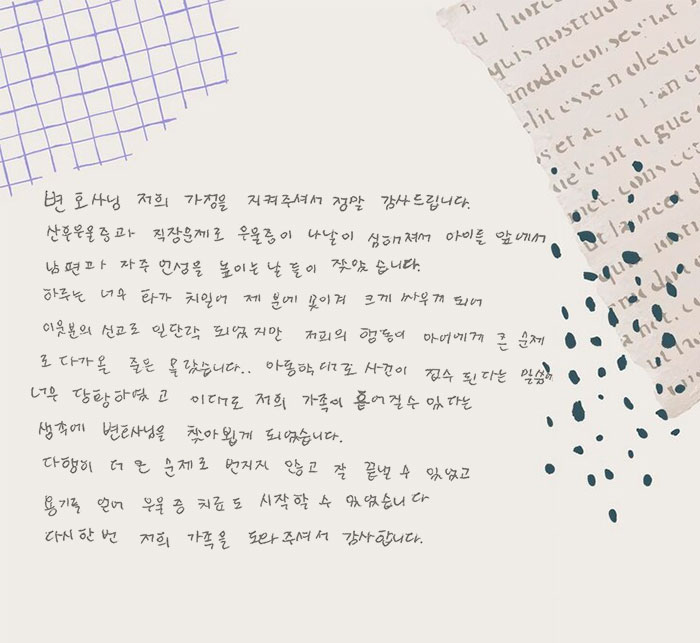 u l lorec
quis nostrud
modo consectat
elit esse molestie
변호사님 저희 가정을 지켜주셔서 정말 감사드립니다.
산후우울증과 직장문제로 우울증이 나날이 심해져서 아이들 앞에서
남편과 자주 언성을 높이는 날 들이 잦았 습니다.
하루는 너무 화가 치밀어 제 분에 못이겨 크게 싸우게 되어
이웃분의 신고로 일단락 되었지만 저희의 행동이 아이에게 큰 문제
로 다가올 줄은 몰랐습니다.. 아동학대로 사건이 접수 된다는 말씀에
너무 당황하였 고 이대로 저희 가족이 흩어질수 있다는
생각에 변호사님을 찾아뵙게 되었습니다.
다행히 더 큰 문제로 번지지 않고 잘 끝낼 수 있었고
용기를 얻어 우울 증 치료도 시작할 수 있었습니다
다시한번 저희 가족을 도와주셔서 감사합니다.